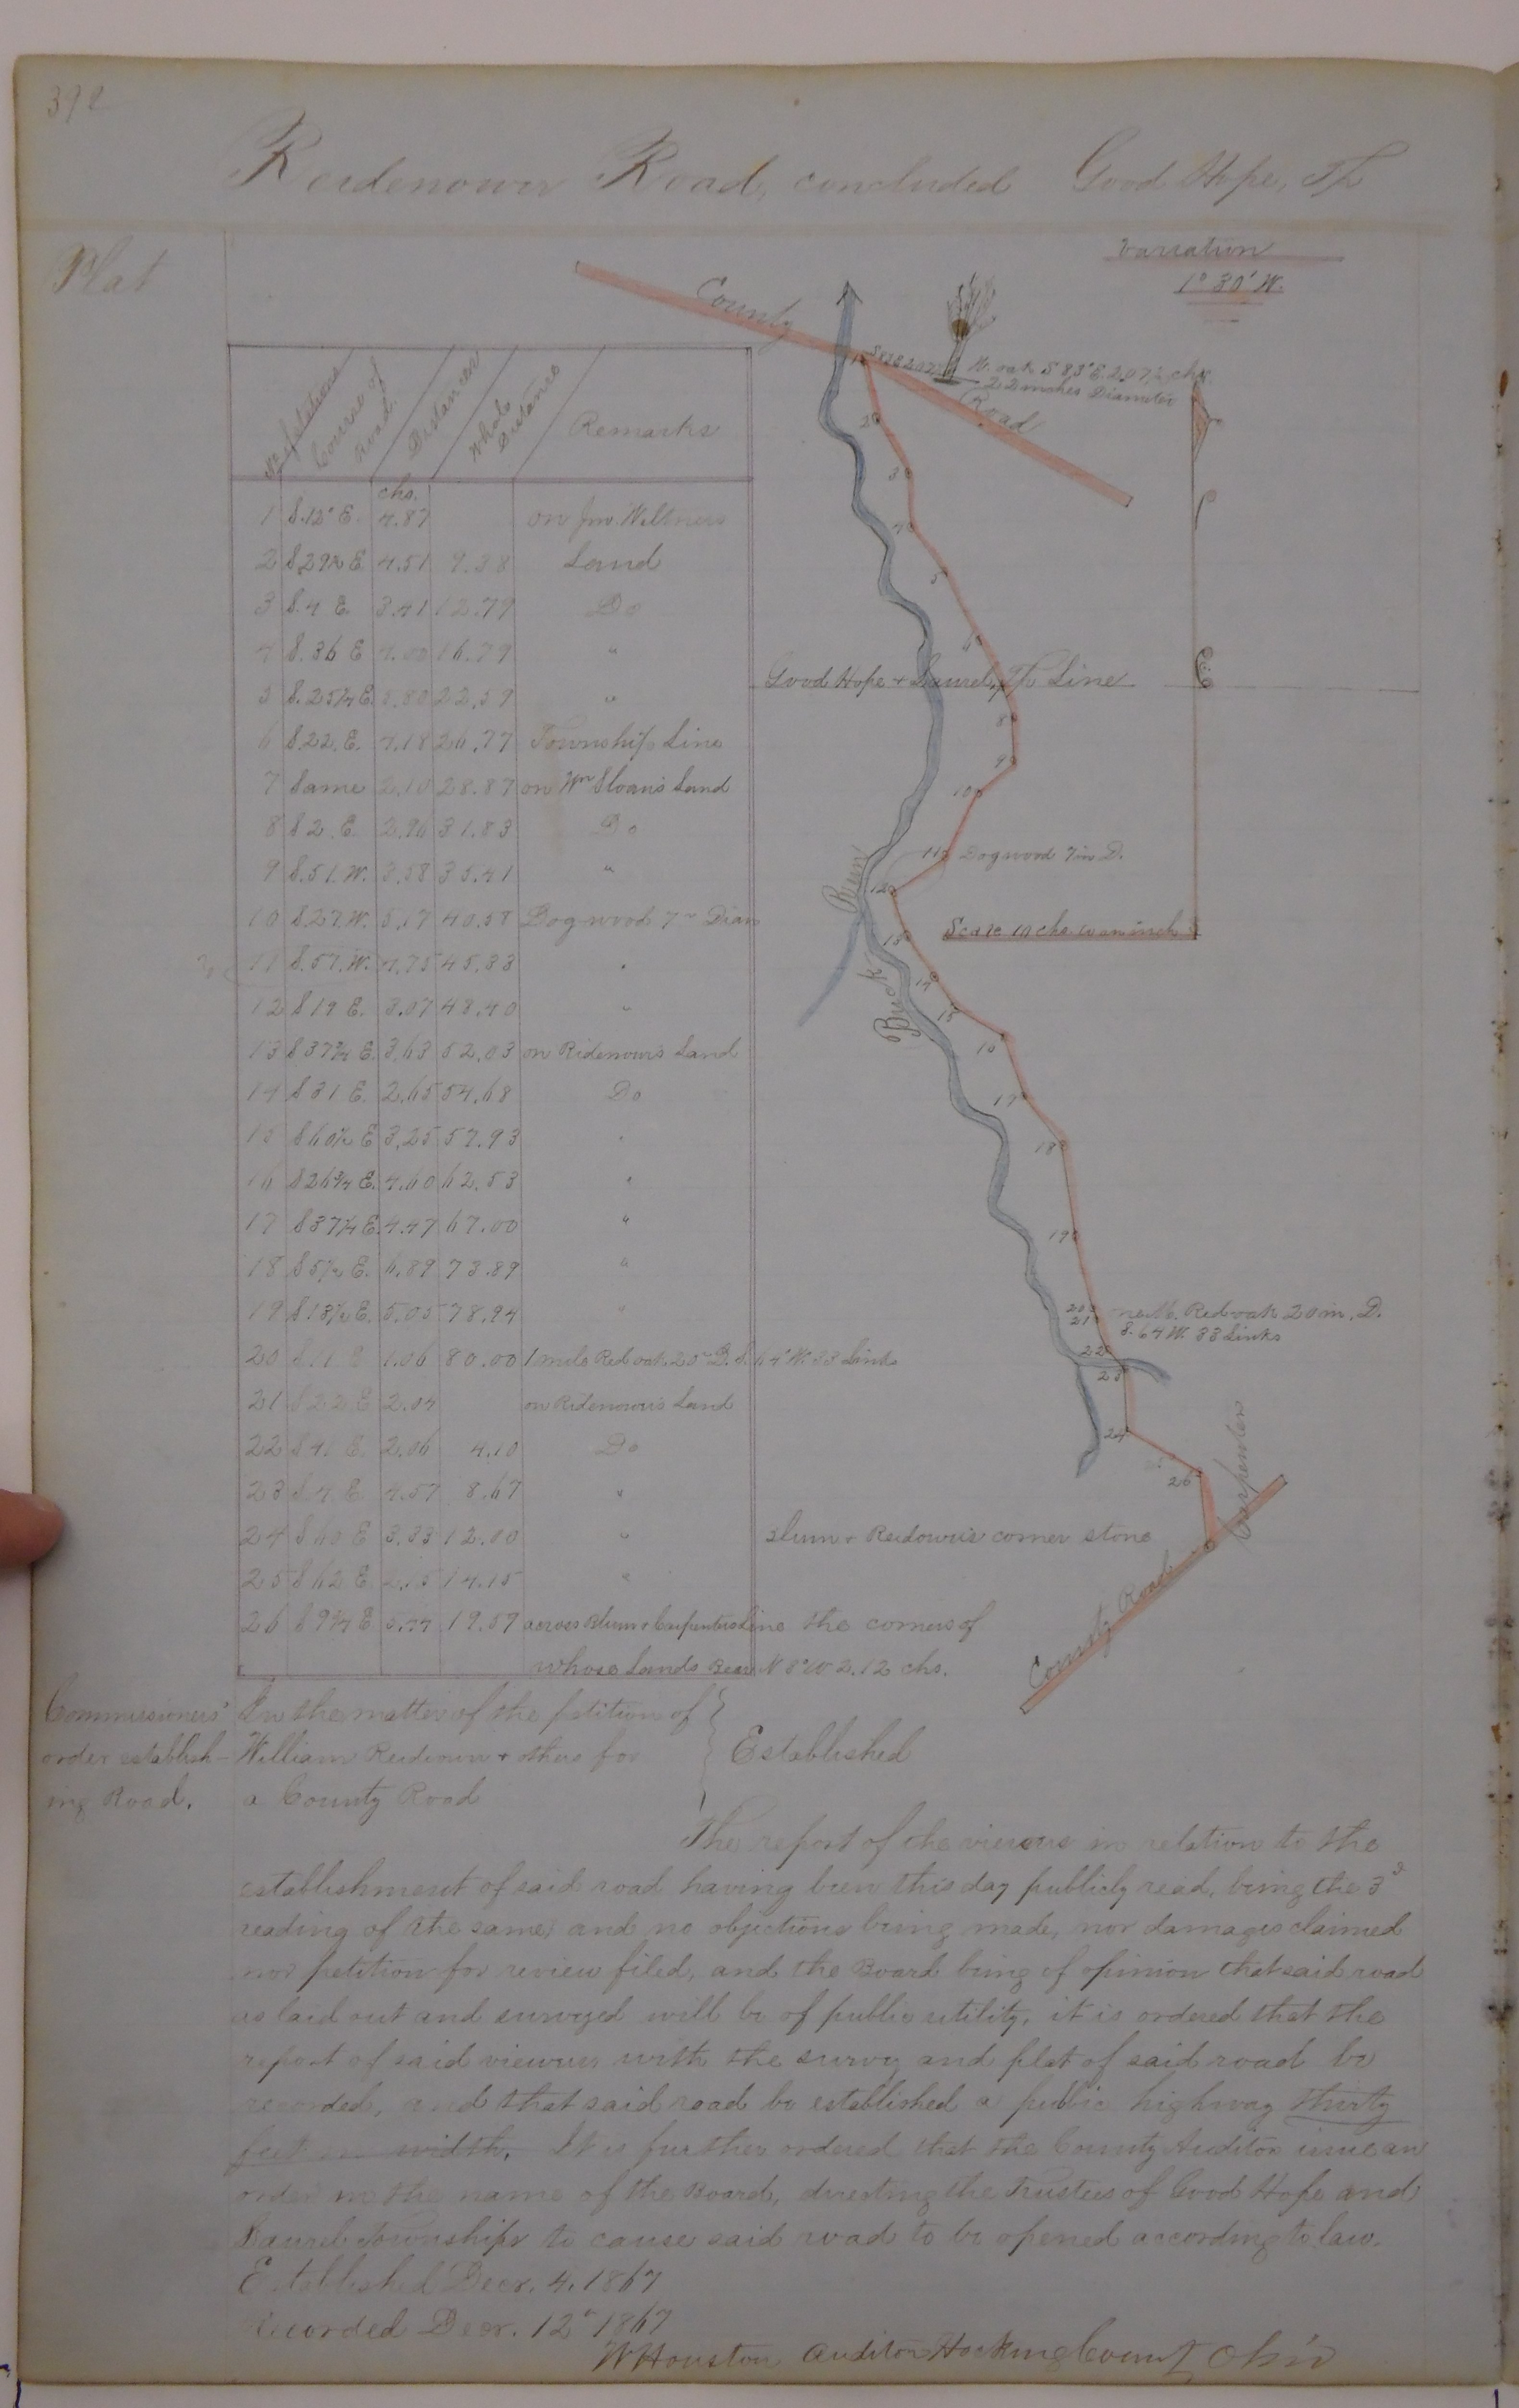 Reidenour Road, concluded Good Hope, Tp
Plat
Variation
1° 30' W.
County
W. oak S 83° E. 2.07½ chs.
22 inches Diameter
Road
No. of stations | Course of Road | Distances | Whole Distance | Remarks
chs.
1 S.12° E. 4.87 on Jno. Weltners
2 S.29½ E 4.51 9.38 Land
3 S.4 E. 3.41 12.79 Do
4 S.36 E 4.00 16.79 "
5 S.25¼ E. 5.80 22.59 "
6 S.22. E. 4.18 26.77 Township Line
7 Same 2.10 28.87 on Wm Sloan's Land
8 S 2. E. 2.96 31.83 Do
9 S.51. W. 3.58 35.41 "
10 S.27. W. 5.17 40.58 Dogwood 7 in Diam
11 S.57. W. 4.75 45.33 "
12 S 19 E. 3.07 48.40 "
13 S 37¾ E. 3.63 52.03 on Ridenour's Land
14 S 31 E. 2.65 54.68 Do
15 S 60½ E 3.25 57.93 "
16 S 26¾ E. 4.60 62.53 "
17 S 37¼ E. 4.47 67.00 "
18 S 5½ E. 6.89 73.89 "
19 S 13½ E. 5.05 78.94 "
20 S 11 E 1.06 80.00 1 mile Red oak. 20 in D. S. 64° W. 33 Links
21 S 22 E 2.04 on Ridenour's Land
22 S 41 E. 2.06 4.10 Do
23 S 4 E. 4.57 8.67 "
24 S 60 E 3.33 12.00 "
25 S 62 E 2.15 14.15 "
26 S 9¼ E 5.44 19.59 across Blum & Carpenters Line the corners of
whose Lands Bear N 8° W 2.12 chs.
1
2
3
4
5
6
Good Hope & Laurel, Tp Line
8
9
10
11 Dogwood 7 in D.
12
Buck Run
Scale 10 chs. to an inch
13
14
15
16
17
18
19
20
21
Red oak 20 in. D.
S. 64 W. 33 Links
22
23
24
26
Carpenters
Blum & Reidour's corner stone
County Road
Commissioners'
order establish-
ing Road.
In the matter of the petition of
William Reidnour & others for
a County Road
Established
The report of the viewers in relation to the
establishment of said road having been this day publicly read, being the 3d
reading of the same, and no objections being made, nor damages claimed
nor petition for review filed, and the Board being of opinion that said road
as laid out and surveyed will be of public utility, it is ordered that the
report of said viewers with the survey and plat of said road be
recorded, and that said road be established a public highway thirty
feet in width. It is further ordered that the County Auditor issue an
order in the name of the Board, directing the Trustees of Good Hope and
Laurel Townships to cause said road to be opened according to law.
Established Decr. 4. 1867
Recorded Decr. 12" 1867
W Houston Auditor Hocking County Ohio